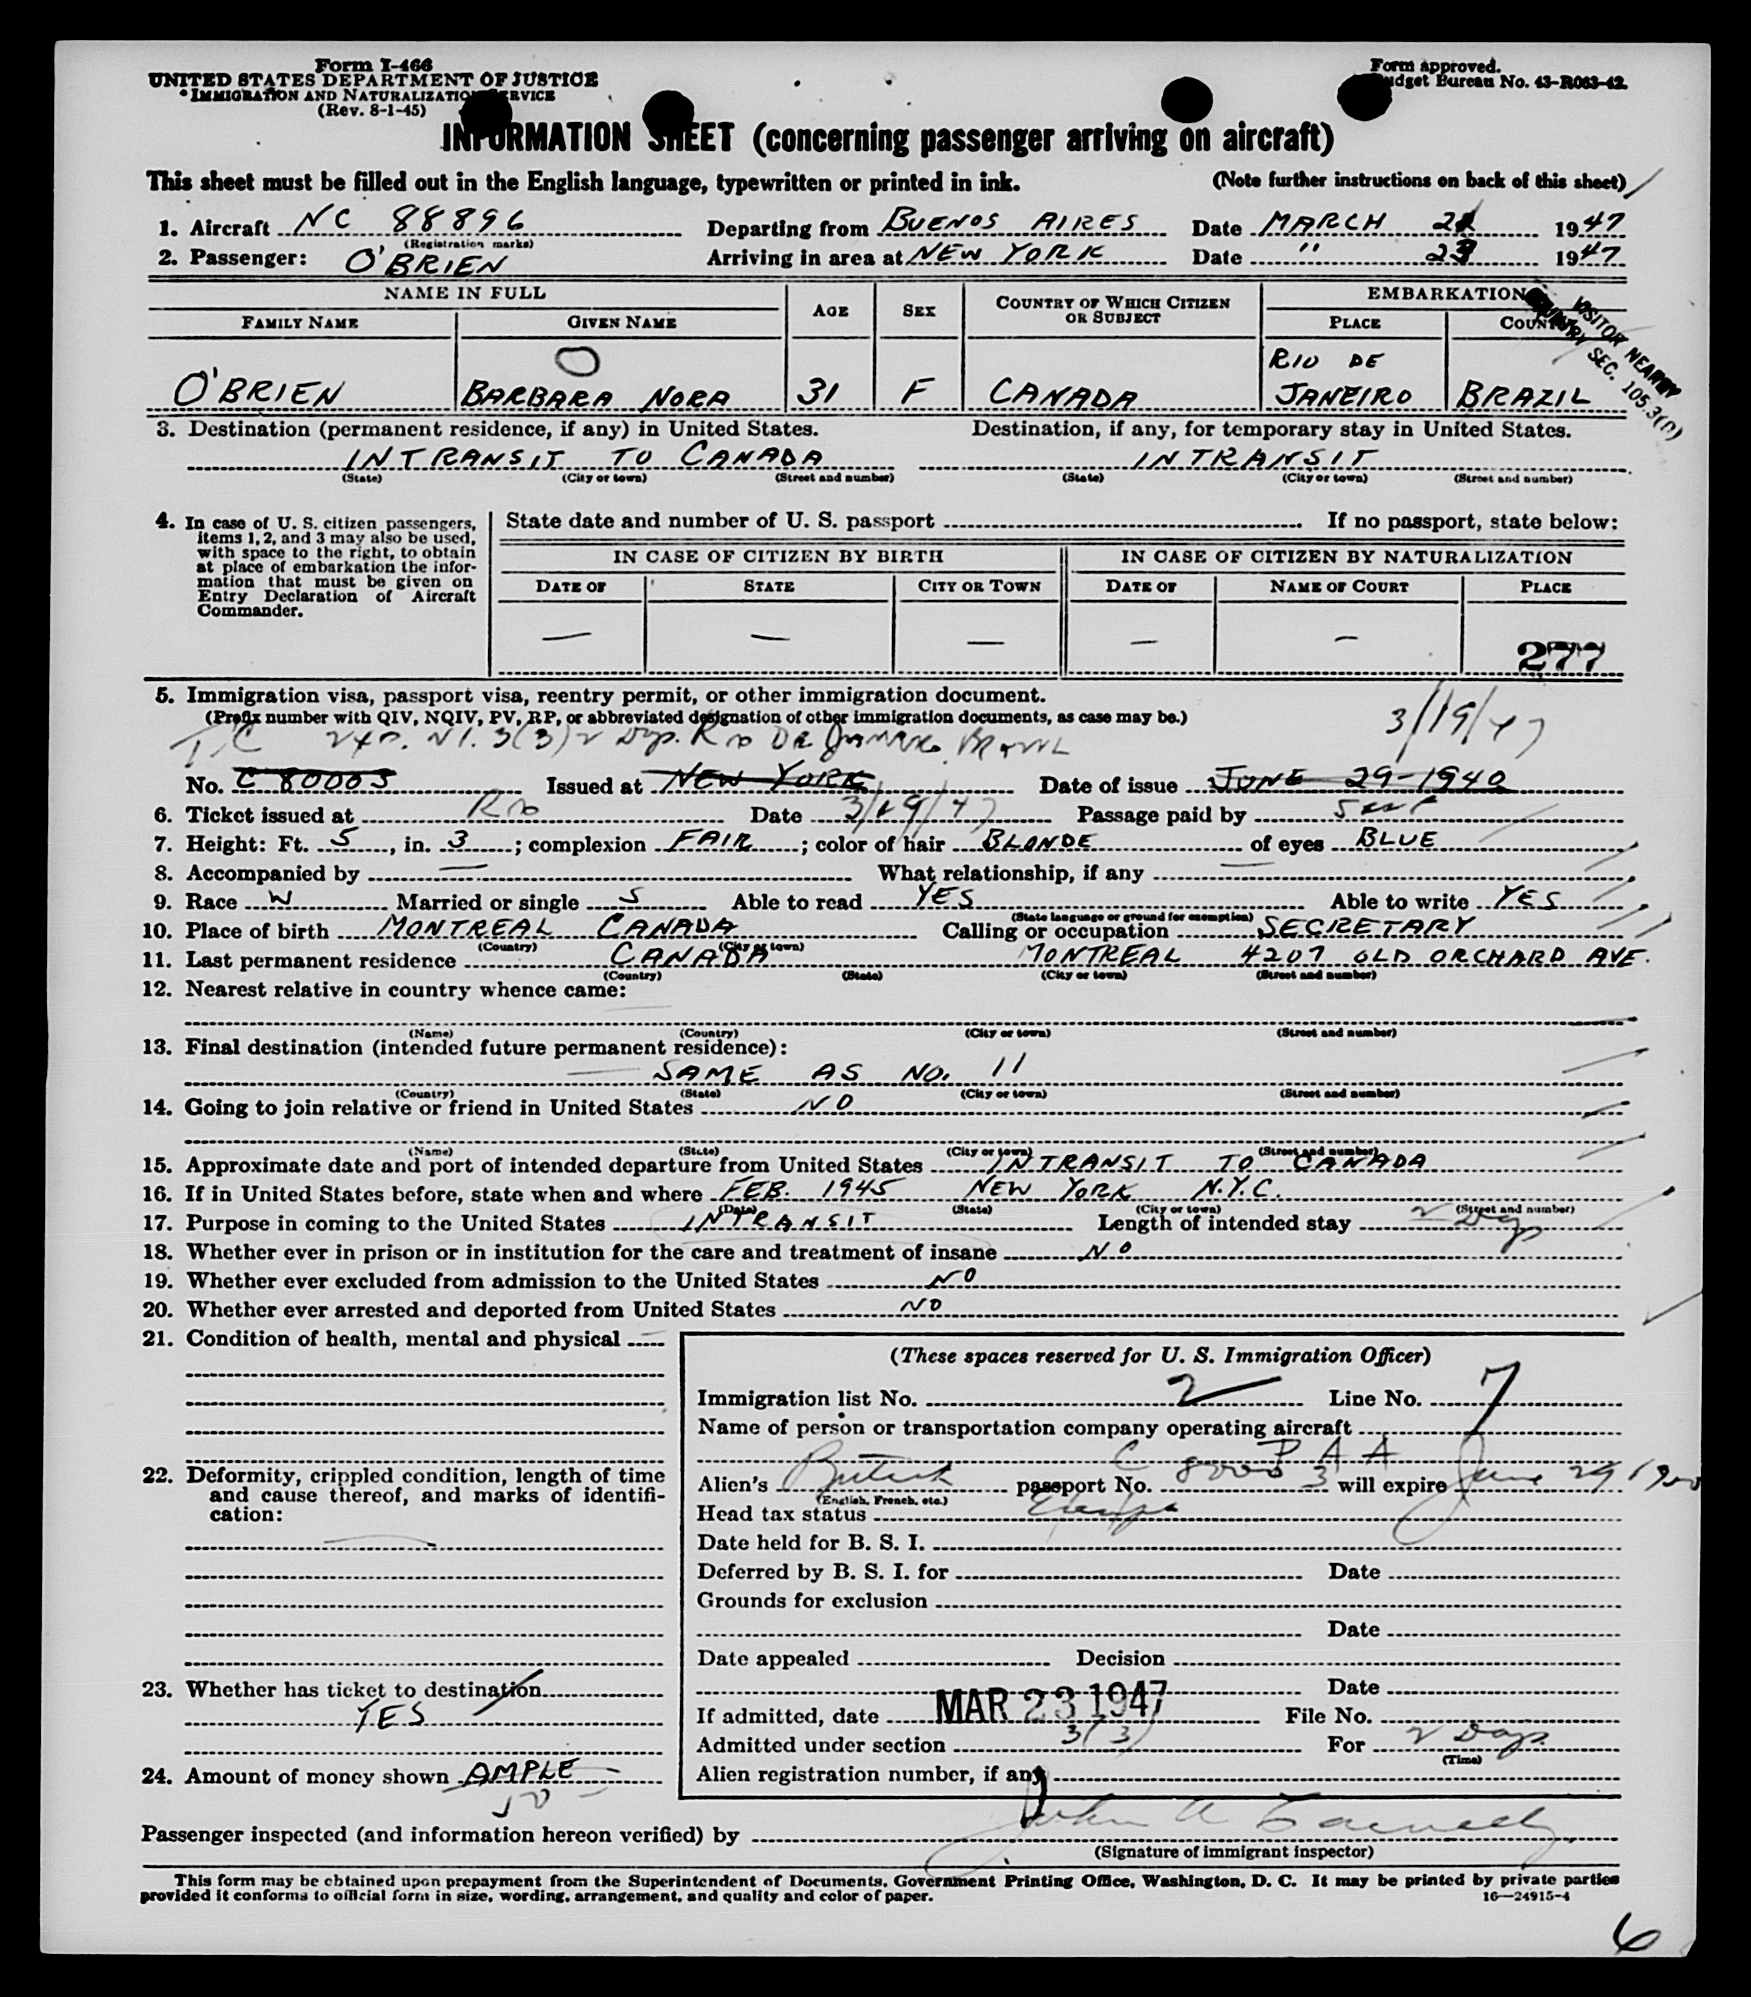 Form I-466
UNITED STATES DEPARTMENT OF JUSTICE
IMMIGRATION AND NATURALIZATION SERVICE
(Rev. 8-1-45)
Form approved.
Budget Bureau No. 43-R063-42.
INFORMATION SHEET (concerning passenger arriving on aircraft)
This sheet must be filled out in the English language, typewritten or printed in ink. (Note further instructions on back of this sheet)
1. Aircraft NC 88896 Departing from BUENOS AIRES Date MARCH 1947
(Registration marks)
2. Passenger: O'BRIEN Arriving in area at NEW YORK Date " 23 1947
NAME IN FULL AGE SEX COUNTRY OF WHICH CITIZEN OR SUBJECT EMBARKATION
FAMILY NAME GIVEN NAME PLACE COUNTRY
VISITOR
SEC. 105.3(1)
O'BRIEN BARBARA NORA 31 F CANADA RIO DE JANEIRO BRAZIL
3. Destination (permanent residence, if any) in United States. Destination, if any, for temporary stay in United States.
INTRANSIT TO CANADA INTRANSIT
(State) (City or town) (Street and number) (State) (City or town) (Street and number)
4. In case of U. S. citizen passengers, items 1, 2, and 3 may also be used, with space to the right, to obtain at place of embarkation the information that must be given on Entry Declaration of Aircraft Commander.
State date and number of U. S. passport If no passport, state below:
IN CASE OF CITIZEN BY BIRTH IN CASE OF CITIZEN BY NATURALIZATION
DATE OF STATE CITY OR TOWN DATE OF NAME OF COURT PLACE
— — — — —
277
5. Immigration visa, passport visa, reentry permit, or other immigration document.
(Prefix number with QIV, NQIV, PV, RP, or abbreviated designation of other immigration documents, as case may be.)
3/19/47
T/C 3(3) 2 Dys. Rio De Janeiro Brazil
No. C 80003 Issued at NEW YORK Date of issue JUNE 29-1940
6. Ticket issued at Rio Date 3/19/47 Passage paid by Self
7. Height: Ft. 5, in. 3; complexion FAIR; color of hair BLONDE of eyes BLUE
8. Accompanied by — What relationship, if any —
9. Race W Married or single S Able to read YES Able to write YES
(State language or ground for exemption)
10. Place of birth MONTREAL CANADA Calling or occupation SECRETARY
(Country) (City or town)
11. Last permanent residence CANADA MONTREAL 4207 OLD ORCHARD AVE.
(Country) (State) (City or town) (Street and number)
12. Nearest relative in country whence came:
(Name) (Country) (City or town) (Street and number)
13. Final destination (intended future permanent residence):
SAME AS NO. 11
(Country) (State) (City or town) (Street and number)
14. Going to join relative or friend in United States NO
(Name) (State) (City or town) (Street and number)
15. Approximate date and port of intended departure from United States INTRANSIT TO CANADA
16. If in United States before, state when and where FEB. 1945 NEW YORK N.Y.C.
(Date) (State) (City or town) (Street and number)
17. Purpose in coming to the United States INTRANSIT Length of intended stay 2 Days
18. Whether ever in prison or in institution for the care and treatment of insane NO
19. Whether ever excluded from admission to the United States NO
20. Whether ever arrested and deported from United States NO
21. Condition of health, mental and physical
22. Deformity, crippled condition, length of time and cause thereof, and marks of identification:
23. Whether has ticket to destination
YES
24. Amount of money shown AMPLE
50
(These spaces reserved for U. S. Immigration Officer)
Immigration list No. 2 Line No. 7
Name of person or transportation company operating aircraft
P A A
Alien's British passport No. C 80003 will expire June 29 1950
(English, French, etc.)
Head tax status Exempt
Date held for B. S. I.
Deferred by B. S. I. for Date
Grounds for exclusion
Date
Date appealed Decision
Date
If admitted, date MAR 23 1947 File No.
Admitted under section 3(3) For 2 Days
(Time)
Alien registration number, if any
Passenger inspected (and information hereon verified) by John A
(Signature of immigrant inspector)
This form may be obtained upon prepayment from the Superintendent of Documents, Government Printing Office, Washington, D. C. It may be printed by private parties
provided it conforms to official form in size, wording, arrangement, and quality and color of paper. 16—24915-4
6